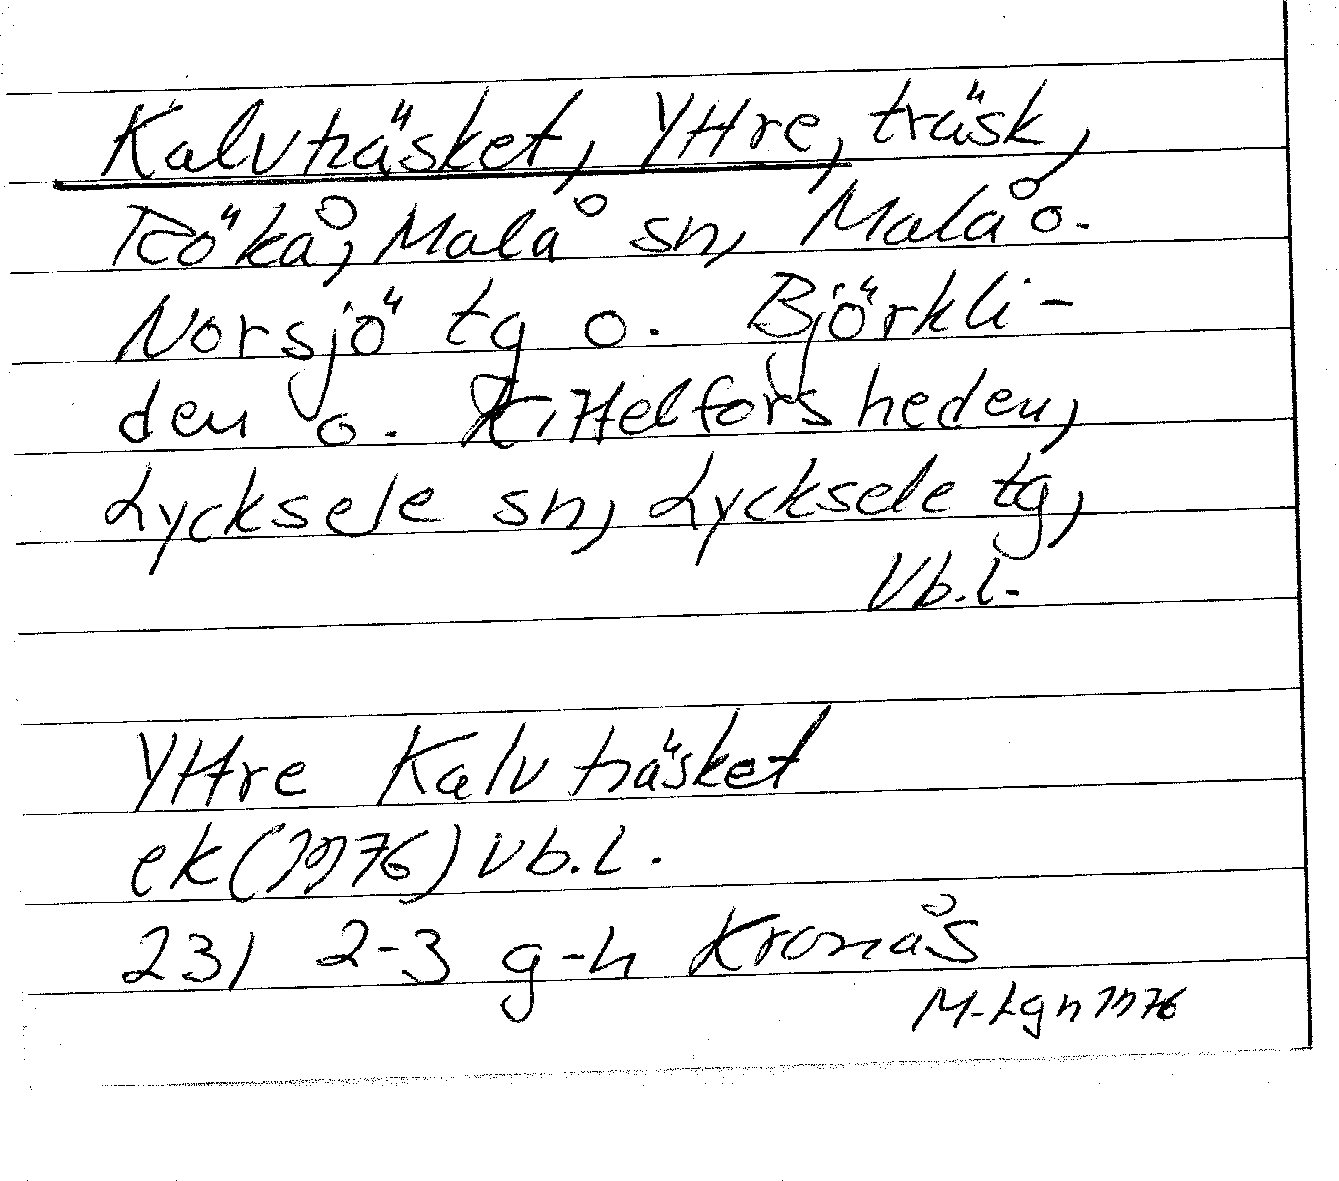 Kalvträsket, Yttre, träsk,
Rökå, Malå sn, Malå o.
Norsjö tg o. Björkli-
den o. Kittelforsheden,
Lycksele sn, Lycksele tg,
Vb.l.
Yttre Kalvträsket
ek (1976) Vb.l.
231 2-3 g-h Kronås
M-Lgn 1976